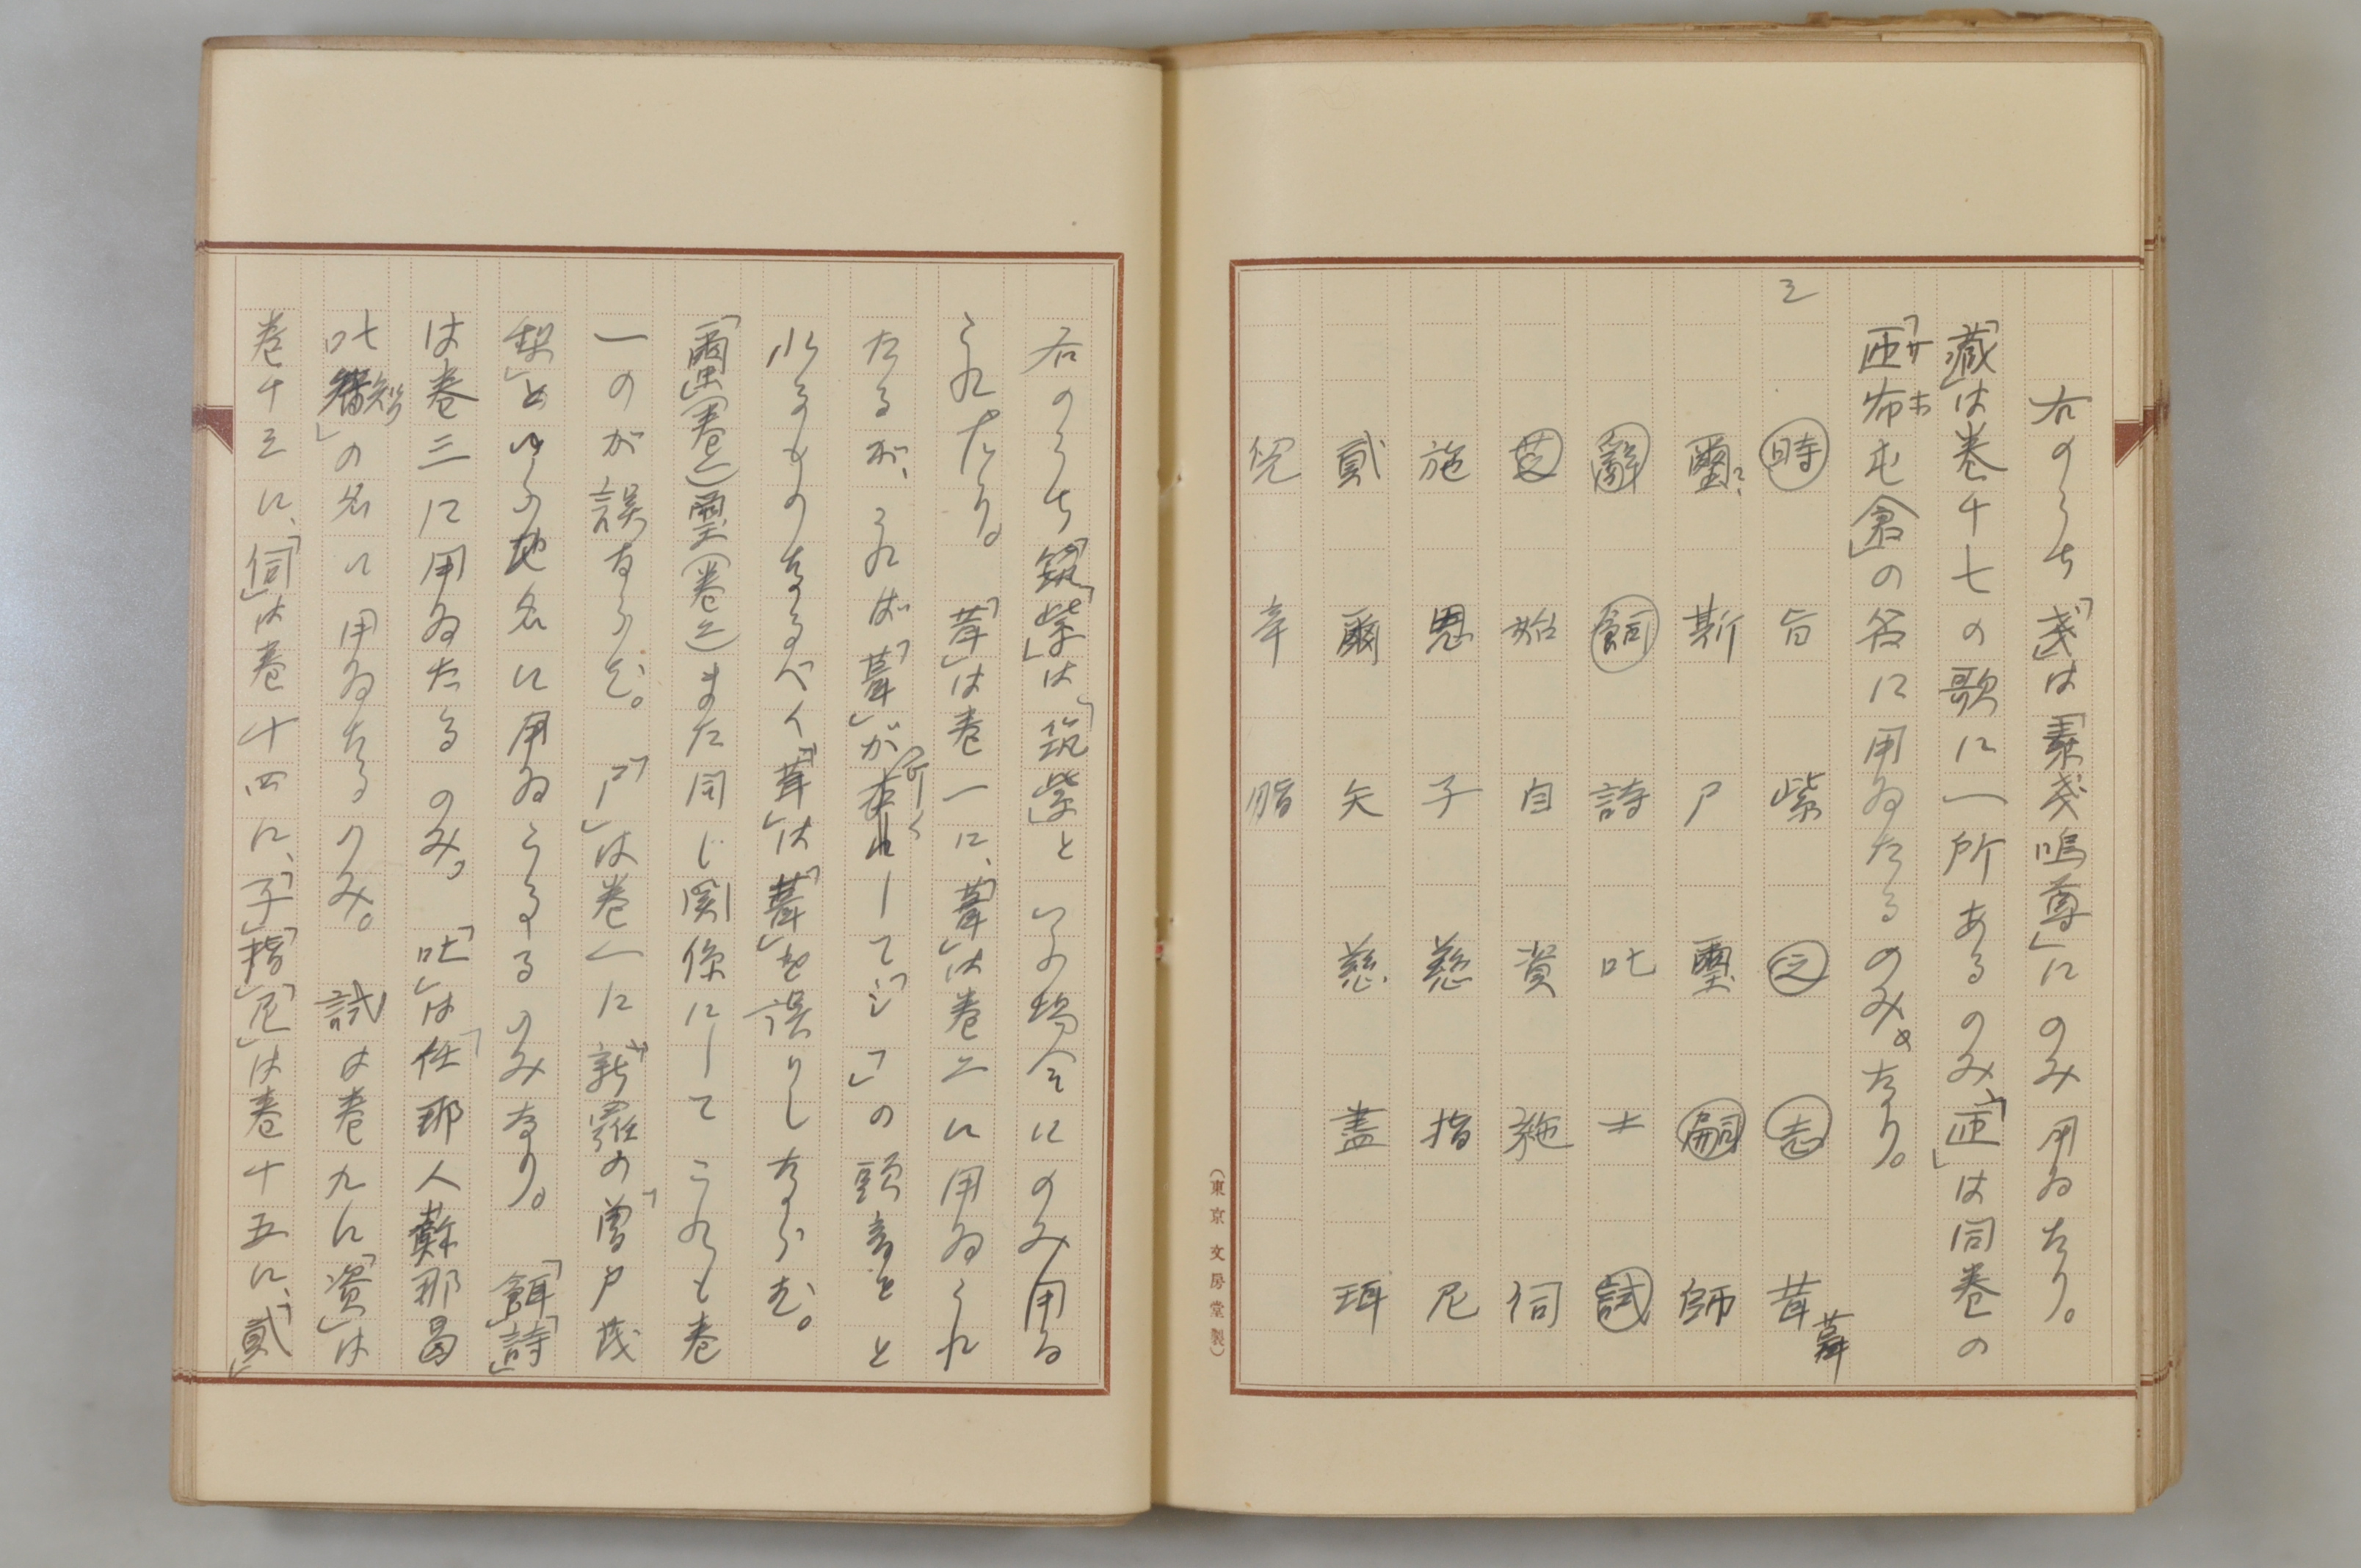 右のうち「戔」は「素戔嗚尊」にのみ用ゐたり。
「蔵」は巻十七の歌に一所あるのみ、「匝」は同巻の
「匝布屯倉」の名に用ゐたるのみなり。
サホ
シ
時 旨 紫 之 志 茸 葺
璽 斯 尸 璽 嗣 師
辭 飼 詩 叱 士 試
芝 始 自 資 絁 伺
施 思 子 慈 指 尼
貳 爾 矢 慈 盡 珥
兒 辛 脂
(東京 文房堂製)
右のうち「筑紫」は「筑紫」といふ場合にのみ用ゐ
られたり。「茸」は巻一に、「葺」は巻二に用ゐられ
たるが、これは「葺」がしてシ」の頭音をと
れるものなるべく「茸」は「葺」を誤りしならむ。
(巻二)璽(巻二)また同じ関係にしてこれらも巻
一のが誤ならむ。「尸」は巻一に新羅の「曽尸茂
梨」といふ地名に用ゐらるるのみなり。「餌」「詩」
は巻三に用ゐたるのみ。「叱」は「任那人蘇那曷
叱智」の名に用ゐたるのみ。試は巻九に「資」は
巻十三に、「伺」は巻十四に、「子」「指」「尼」は巻十五に、「貳」